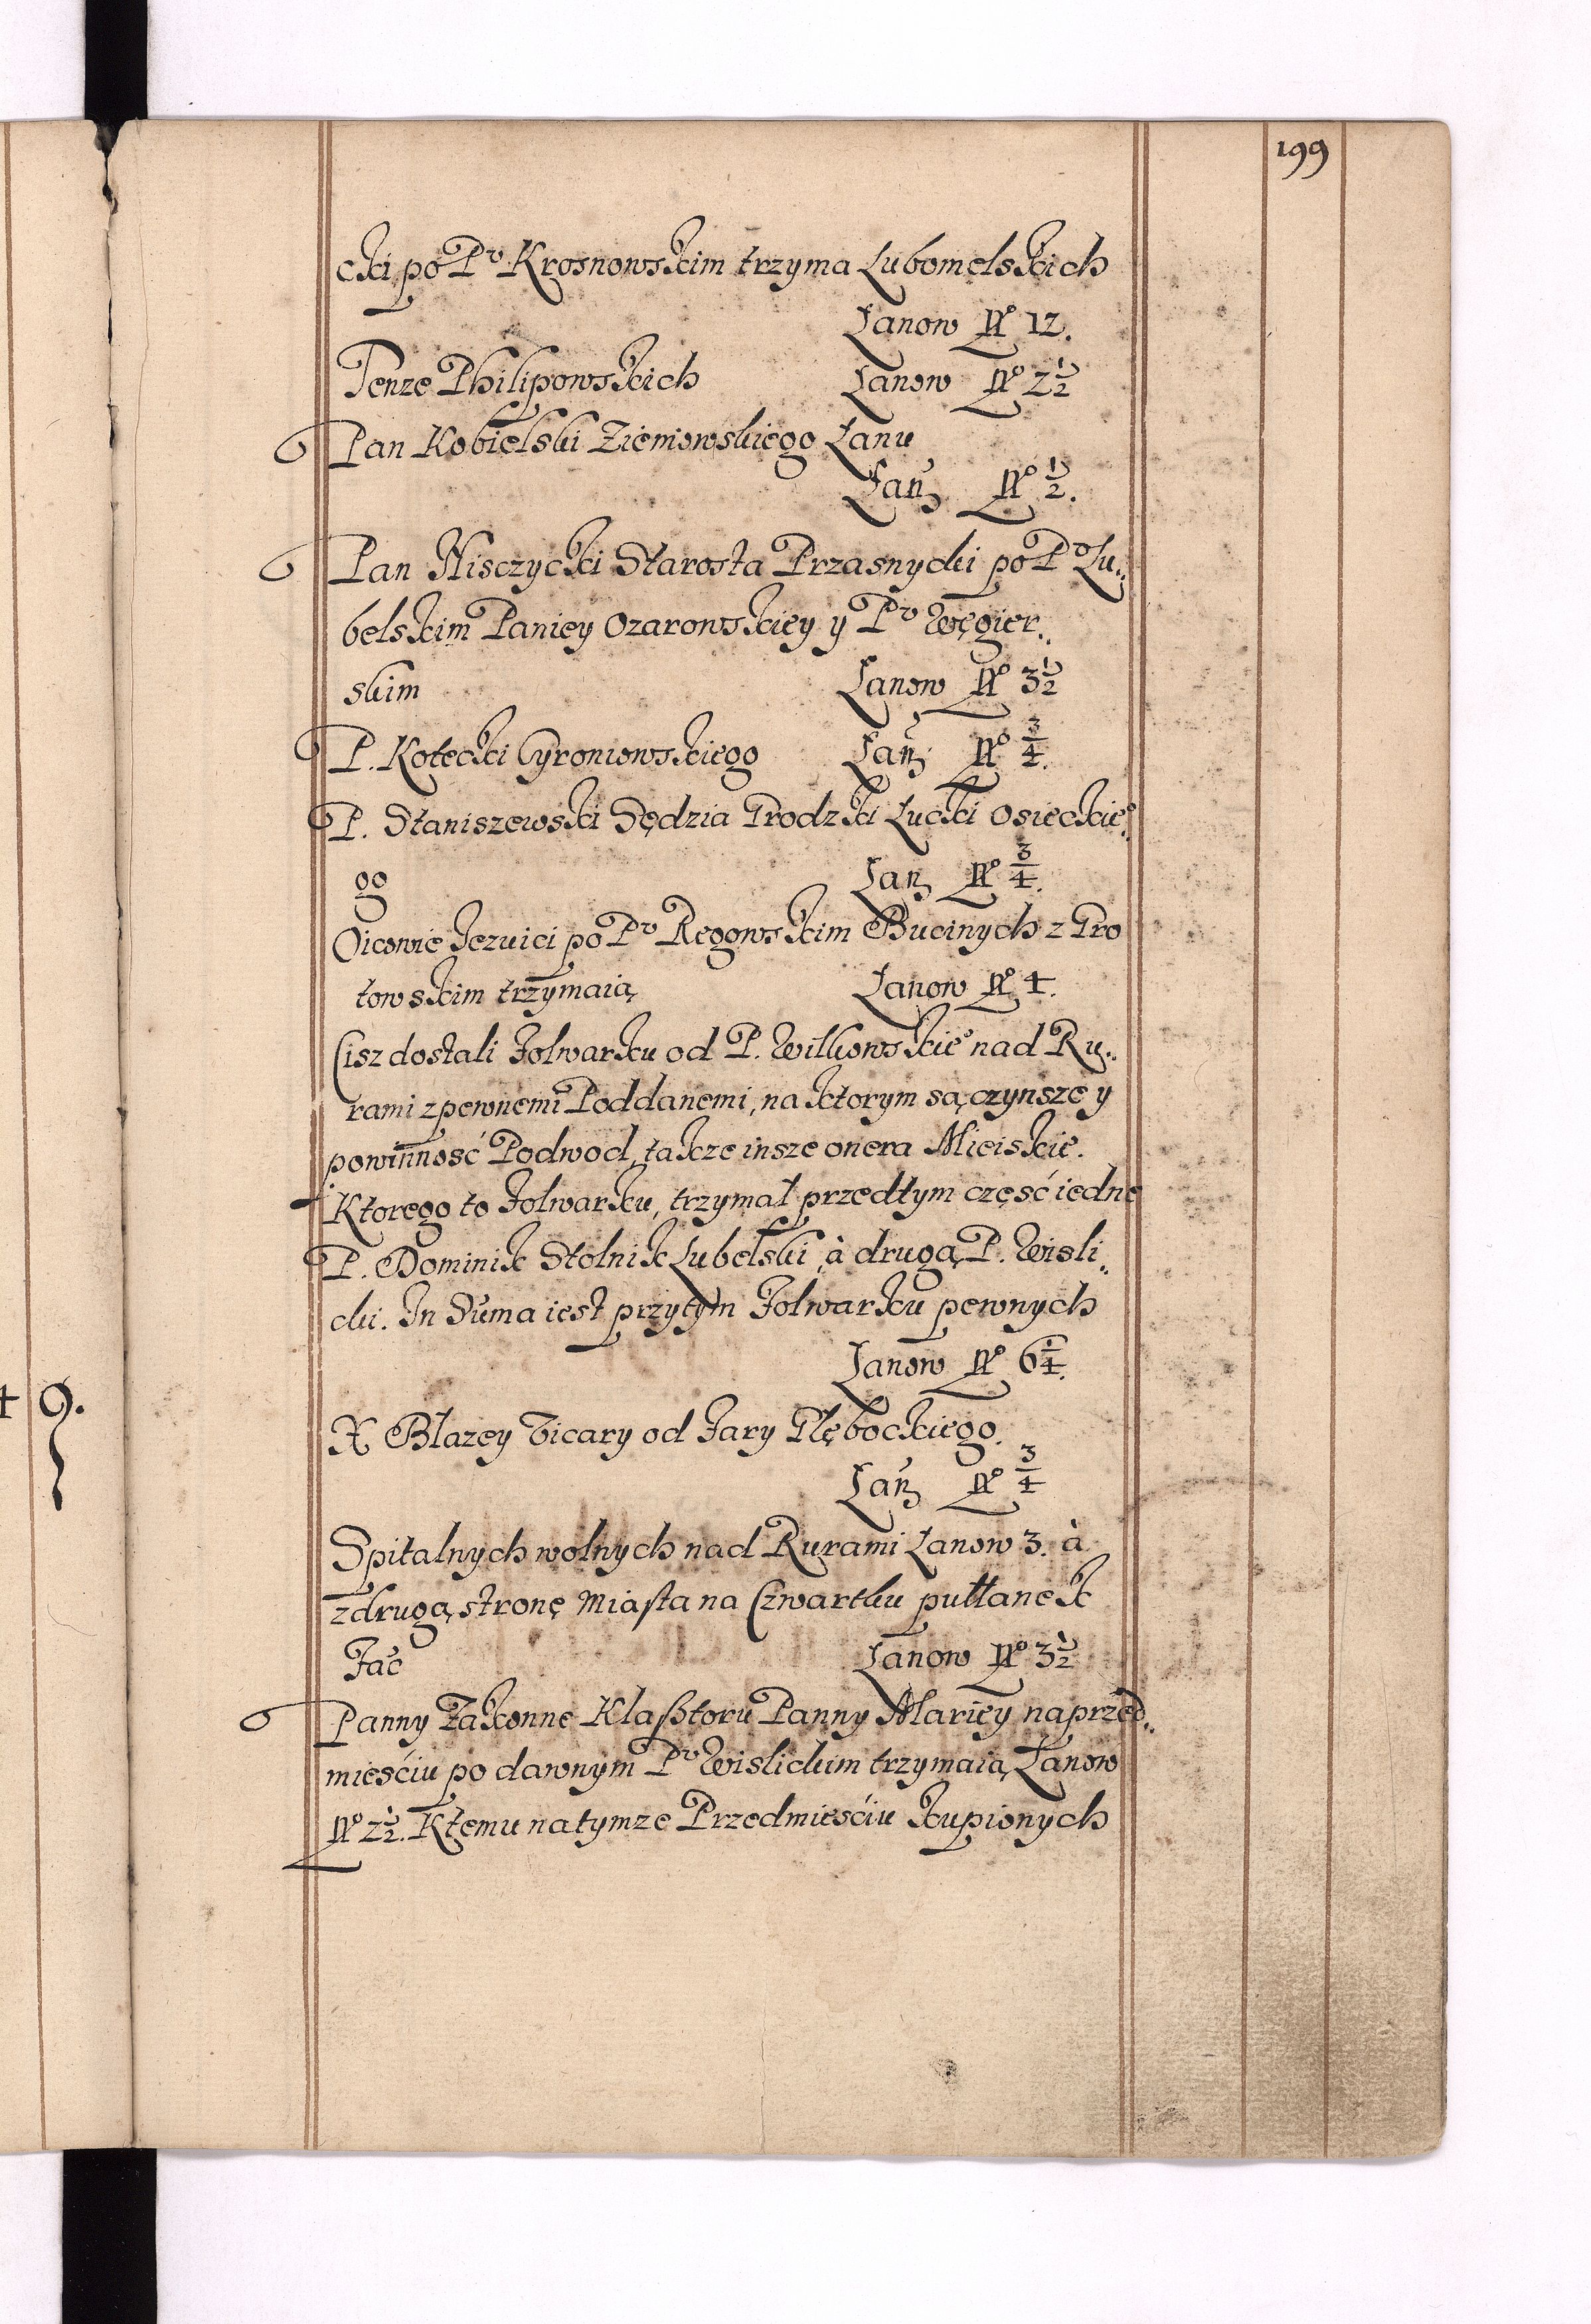 199
cki po Pᵘ Krosnowskim trzyma Lubomelskich
Łanow No 12.
Tenze Philipowskich Łanow No 2½
Pan Kobielski Ziemowskiego Łanu
Łan No ½.
Pan Nisczycki Starosta Przasnycki po Pᵘ Lu„
belskim Paniey Ozarowskiey y Pᵘ Węgier„
skim Łanow No 3½
P. Kotecki Gyroniowskiego Łan No ¾.
P. Staniszewski Sędzia Grodzki Łucki Osieckie„
go Łan No ¾.
Oicowie Iezuici po Pᵘ Regowskim Bucinych z Gro
towskim trzymaią Łanow No 4.
Cisz dostali Folwarku od P. Wilkowskieᵒ nad Ru„
rami z pewnemi Poddanemi, na ktorym są czynsze y
powinność Podwod, takze insze onera Mieiskie.
Ktorego to Folwarku, trzymał przedtym część iednę
P. Dominik Stolnik Lubelski, à drugą P. Wisli„
cki. In Suma iest przytym Folwarku pewnych
Łanow No 6¼.
X Błazey Vicary od Fary Głębockiego.
Łan No ¾
Spitalnych wolnych nad Rurami Łanow 3. à
z drugą stronę Miasta na Czwartku pułłanek
Fac Łanow No 3½
Panny Zakonne Klasztoru Panny Mariey na przed„
mieściu po dawnym Pᵘ Wislickim trzymaią Łanow
No 2½. Ktemu na tymze Przedmieściu kupionych
4 9.